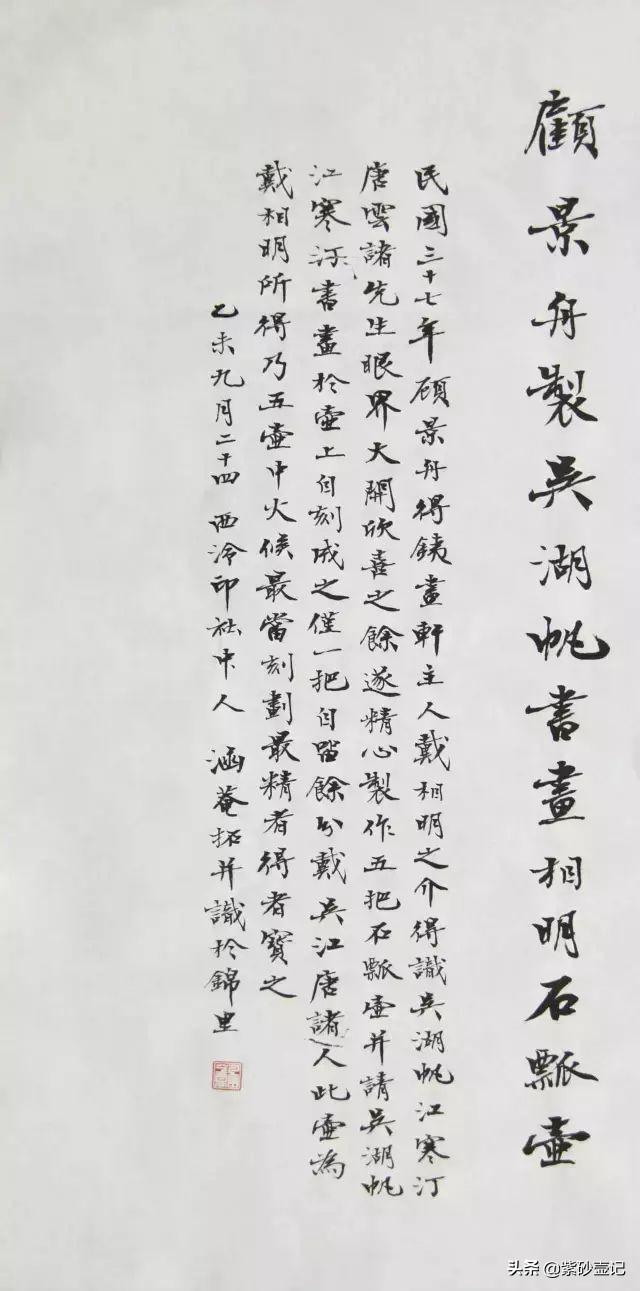 顧景舟製吳湖帆書畫相明石瓢壺
民國三十七年顾景舟得鐵畫軒主人戴相明之介得識吳湖帆江寒汀
唐雲諸先生眼界大開欣喜之餘遂精心製作五把石瓢壺并請吳湖帆
江寒汀書畫於壺上自刻成之僅一把自留餘分戴吳江唐諸人此壺為
戴相明所得乃五壺中火候最當刻劃最精者得者寶之
乙未九月二十四 西泠印社中人 涵菴拓并識於錦里
头条 @紫砂壶记